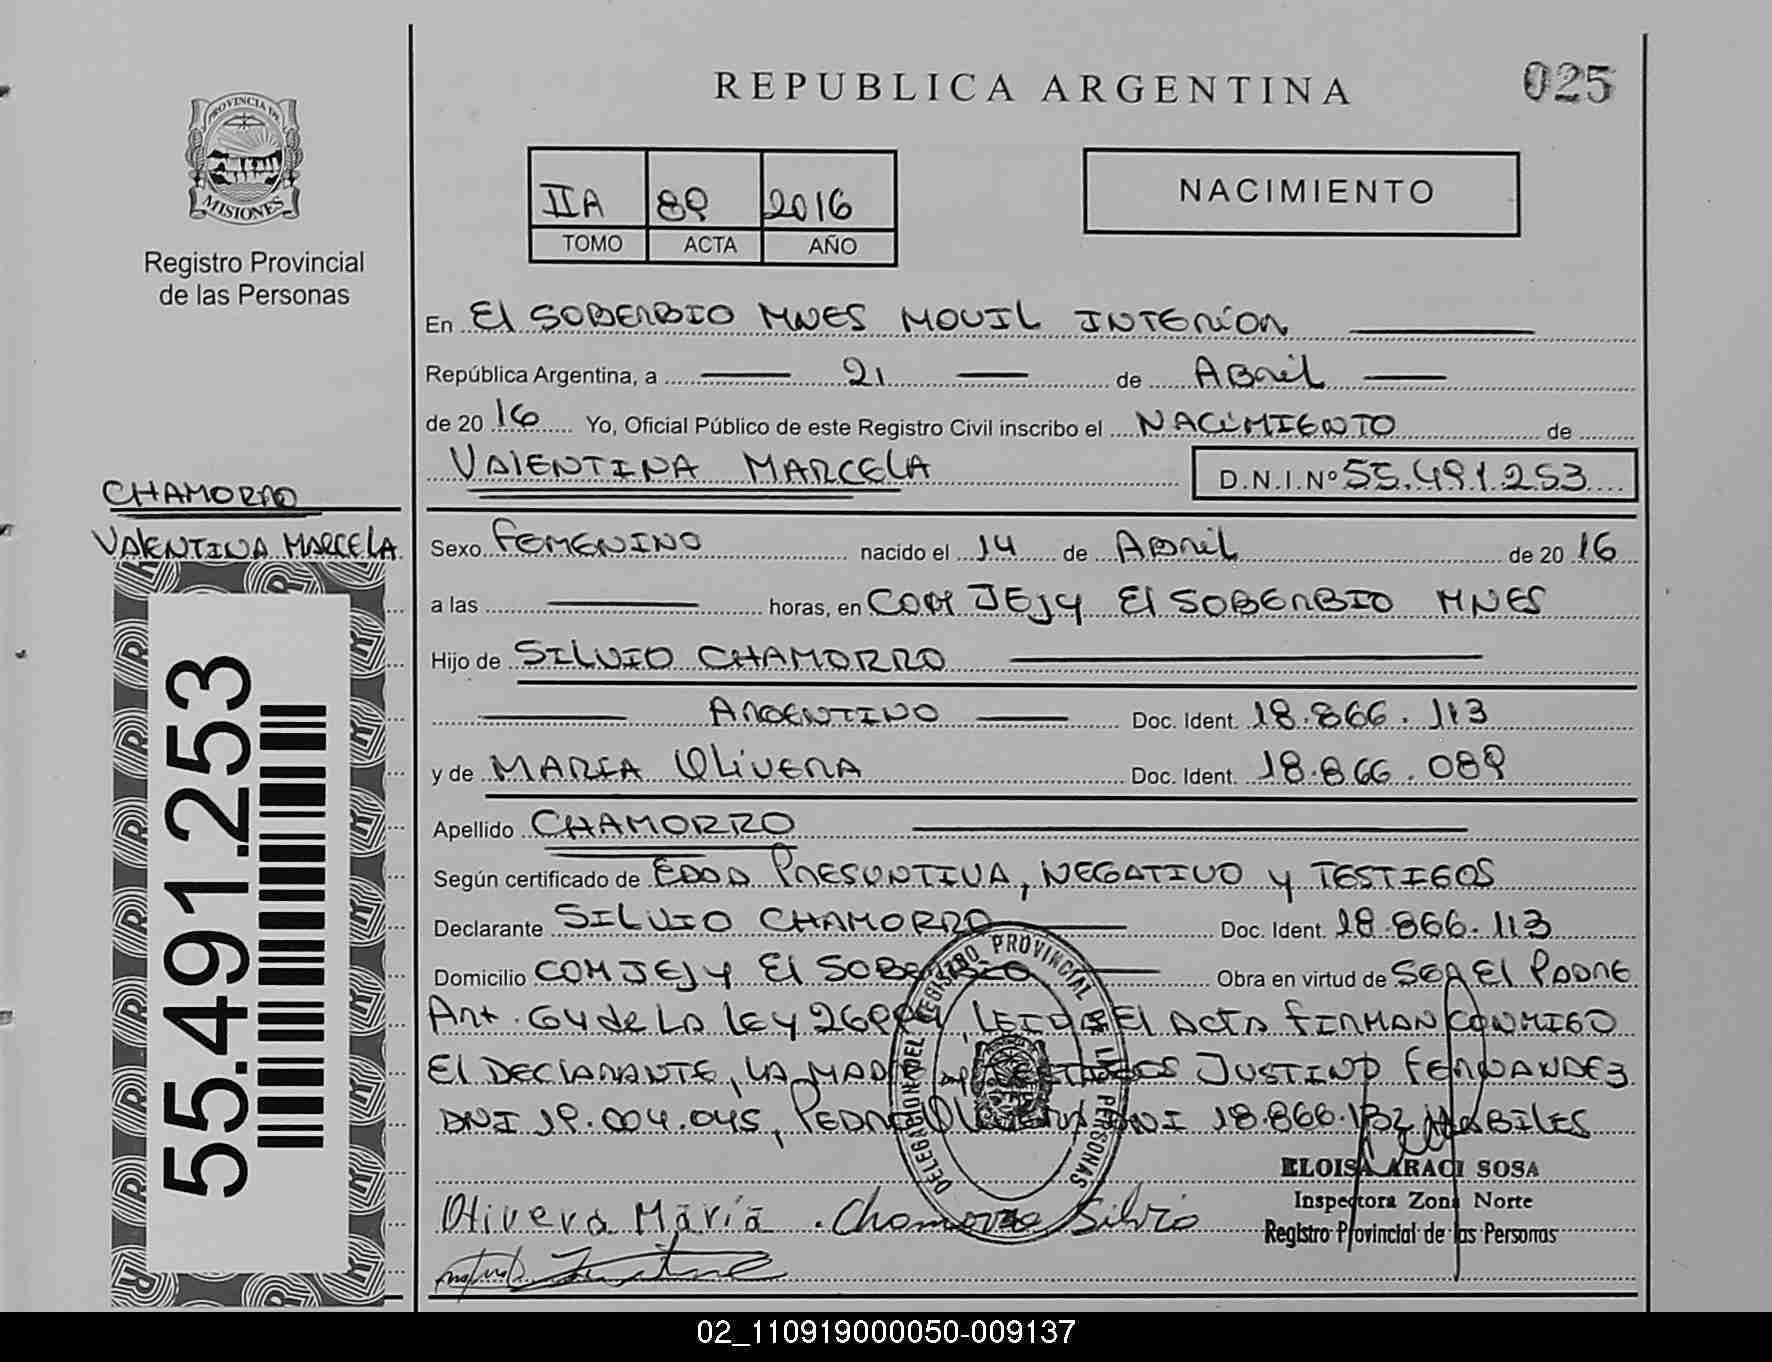 REPUBLICA ARGENTINA
025
PROVINCIA DE
MISIONES
Registro Provincial
de las Personas
IIA 89 2016
TOMO ACTA AÑO
NACIMIENTO
En El SOBERBIO MNES MOVIL INTERIOR
República Argentina, a 21 de Abril
de 20 16 Yo, Oficial Público de este Registro Civil inscribo el NACIMIENTO de
VALENTINA MARCELA D.N.I.Nº 55.491.253
CHAMORRO
VALENTINA MARCELA
55.491.253
Sexo FEMENINO nacido el 14 de Abril de 20 16
a las horas, en COM JEJY El SOBERBIO MNES
Hijo de SILVIO CHAMORRO
ARGENTINO Doc. Ident. 18.866.113
y de MARIA OLIVERA Doc. Ident. 18.866.089
Apellido CHAMORRO
Según certificado de EDAD PRESUNTIVA, NEGATIVO y TESTIGOS
Declarante SILVIO CHAMORRO Doc. Ident. 18.866.113
Domicilio COM JEJY El SOBERBIO Obra en virtud de SER El PADRE
Art. 64 de LA LEY LEIDA El ACTA FIRMAN CONMIGO
El DECLARANTE, LA MADRE y TESTIGOS JUSTINO FERNANDEZ
DNI 19.004.045, PEDRO OLIVERA DNI 18.866.132 HABILES
DELEGACION DEL REGISTRO PROVINCIAL DE LAS PERSONAS
ELOISA ARACI SOSA
Inspectora Zona Norte
Registro Provincial de las Personas
Olivera María Chamorro Silvio
02_110919000050-009137